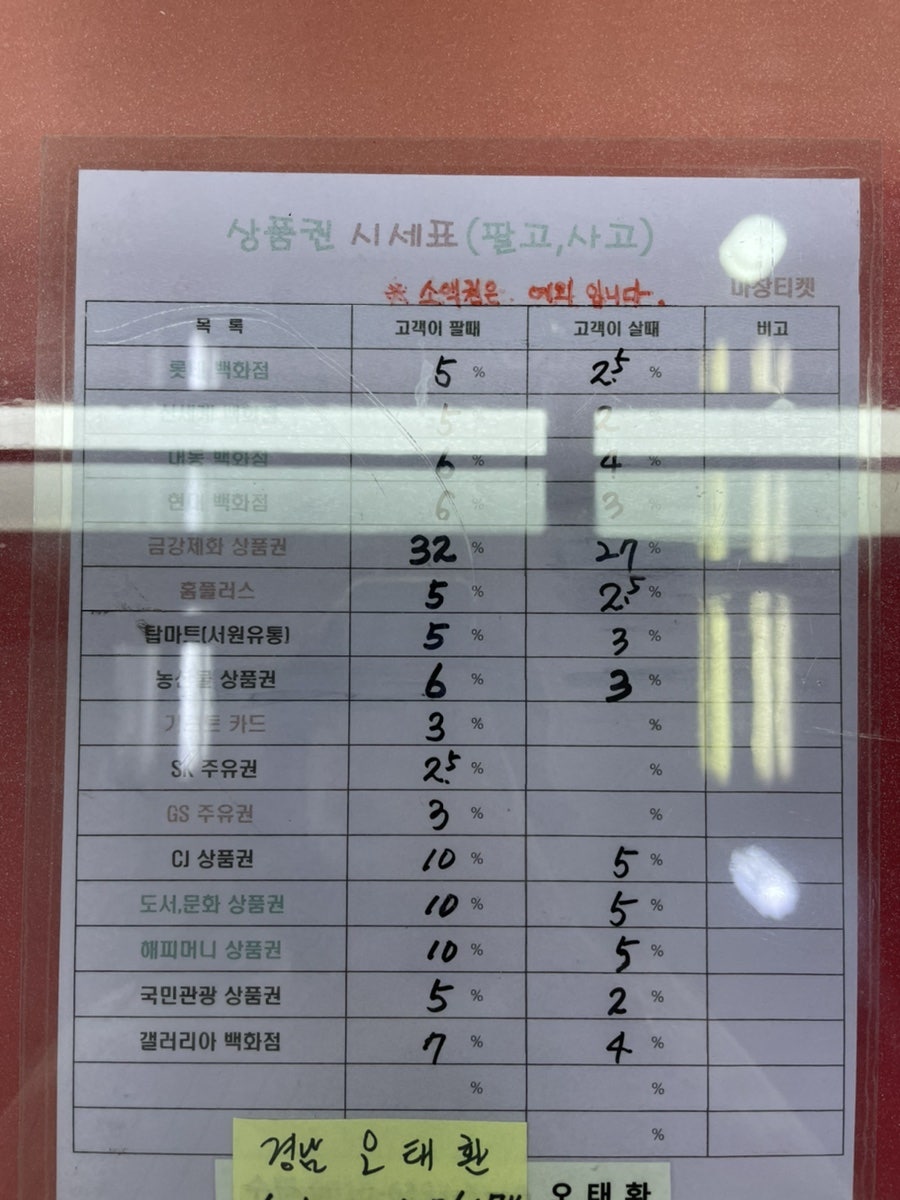 상품권 시세표(팔고,사고)
※ 소액권은 예외 입니다.
마장티켓
목 록 고객이 팔때 고객이 살때 비고
롯데 백화점 5 % 2.5 %
신세계 백화점 5 2
대동 백화점 6 % 4 %
현대 백화점 6 % 3 %
금강제화 상품권 32 % 27 %
홈플러스 5 % 2.5 %
탑마트(서원유통) 5 % 3 %
농산물 상품권 6 % 3 %
기프트 카드 3 % %
SK 주유권 2.5 % %
GS 주유권 3 % %
CJ 상품권 10 % 5 %
도서,문화 상품권 10 % 5 %
해피머니 상품권 10 % 5 %
국민관광 상품권 5 % 2 %
갤러리아 백화점 7 % 4 %
% %
%
경남 오태환
오태환